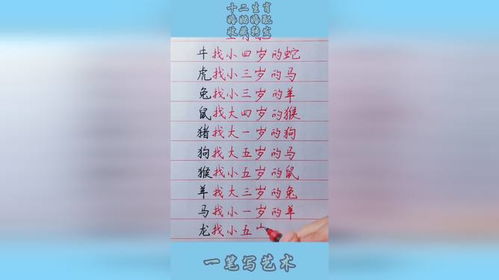 十二生肖
婚姻婚配
收藏转发
牛找小四岁的蛇
虎找小三岁的马
兔找小三岁的羊
鼠找大四岁的猴
猪找大一岁的狗
狗找大五岁的马
猴找小五岁的鼠
羊找大三岁的兔
马找小一岁的羊
龙找小五
一笔写艺术